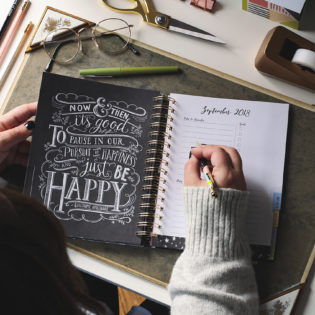 NOW & Then,
it's good
TO PAUSE IN OUR
PURSUIT OF HAPPINESS
AND
just BE
HAPPY
September 2018